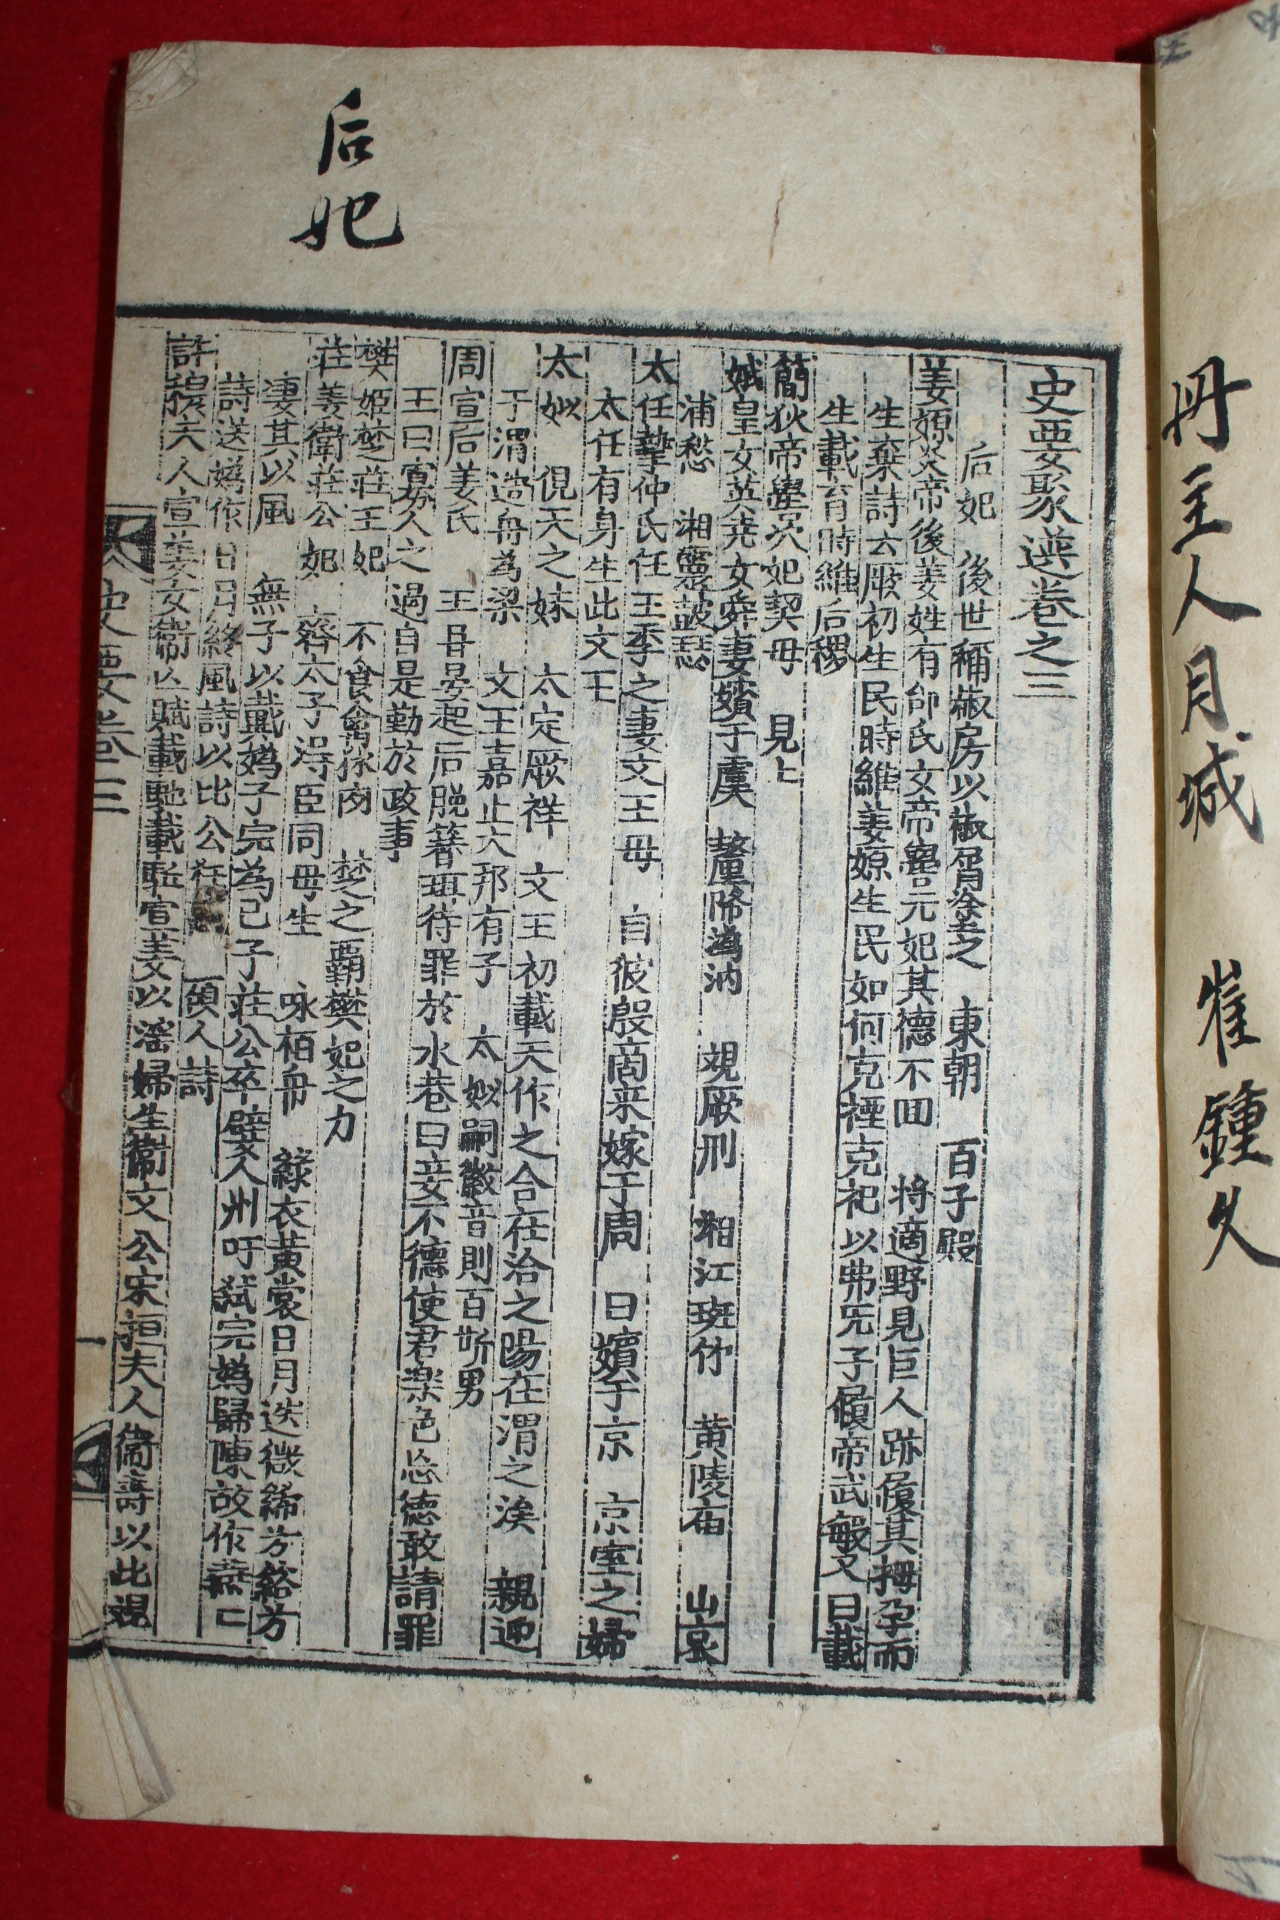 冊主人月城 崔鍾久
后妃
史要聚選卷之三
后妃 後世稱椒房以椒屑塗之 東朝 百子殿
姜嫄炎帝後姜姓有邰氏女帝嚳元妃其德不回 將適野見巨人跡履其拇孕而
生棄詩云厥初生民時維姜嫄生民如何克禋克祀以弗兂子履帝武敏又曰載
生載育時維后稷
簡狄帝嚳次妃契母 見上
娥皇女英堯女舜妻嬪于虞 釐降溈汭 覌厥刑 相江斑竹 黃陵庙 山哀
浦愁 湘靈鼓瑟
太任摯仲氏任王季之妻文王母 自彼殷商来嫁于周 曰嬪于京 京室之婦
太任有身生此文王
太姒 俔天之妹 太定厥祥 文王初載天作之合在洽之陽在渭之涘 親迎
于渭造舟為梁 文王嘉止大邦有子 太姒嗣徽音則百斯男
周宣后姜氏 王甞晏起后脫簪珥待罪於水巷曰妾不德使君楽色忘德敢請罪
王曰寡人之過自是勤於政事
樊姬楚莊王妃 不食禽獸肉 楚之覇樊妃之力
莊姜衛莊公妃 齊太子淂臣同母生 咏栢舟 綠衣黃裳日月迭微絺方綌方
凄其以風 無子以戴嬀子完為己子莊公卒嬖人州吁弑完嬀歸陳故作燕〻
詩送嬀作日月終風詩以比公狂 頎人詩
許穆夫人宣姜女衛亾賦載馳載驅宣姜以淫婦生衛文公宋桓夫人衛壽以此覌
史要卷三
一